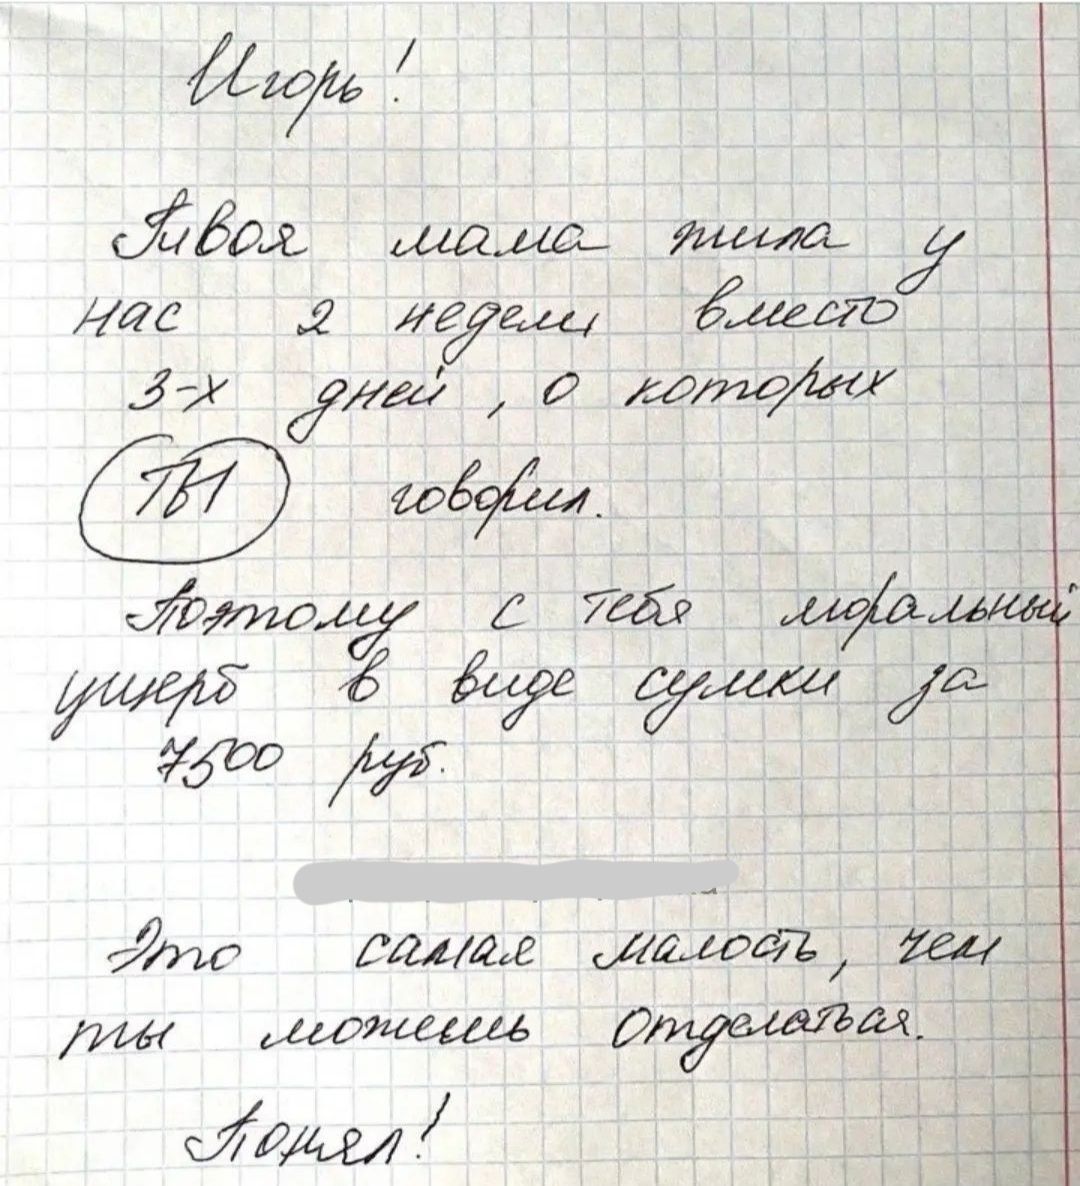 Игорь!
Твоя мама жила у
нас 2 недели вместо
3-х дней, о которых
ТЫ говорил.
Поэтому с тебя моральный
ущерб в виде сумки за
7500 руб.
Это самая малость, чем
ты можешь отделаться.
Понял!